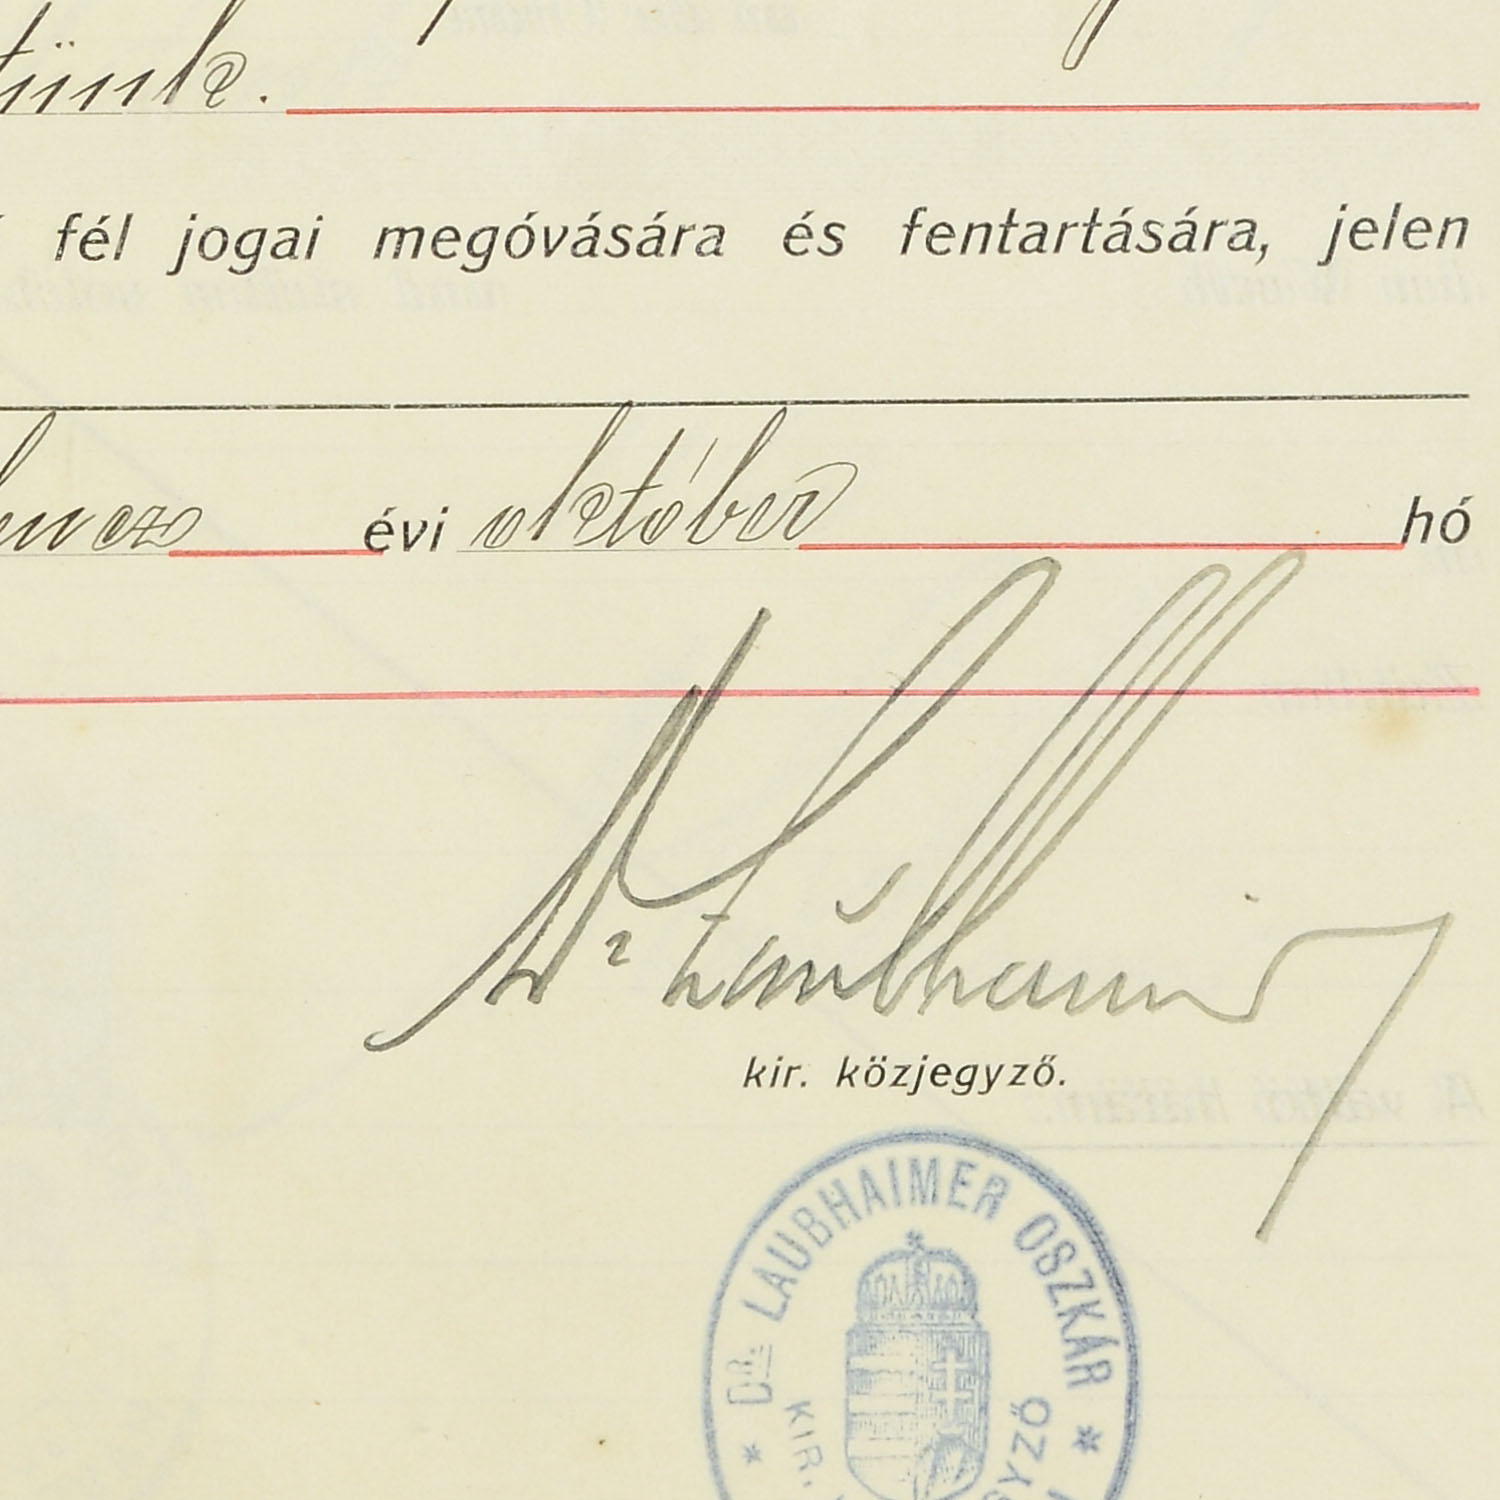 fél jogai megóvására és fentartására, jelen
évi október hó
Dr Laubhaimer
kir. közjegyző.
DR. LAUBHAIMER OSZKÁR
KIR.